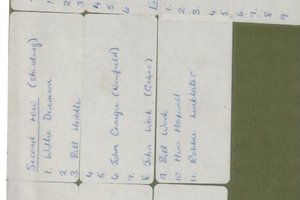 Second row (standing)
1. Willie Dennison
2
3 Bill Heddle
4
5.
6. John Craigie (Newfield)
7.
8. John Work
9. Bill Work
10 Miss Maxwell
11. Robbie Linklater
2
3
4
5.
6
1.
2.
3
4.
5.
6.
7.
8
9